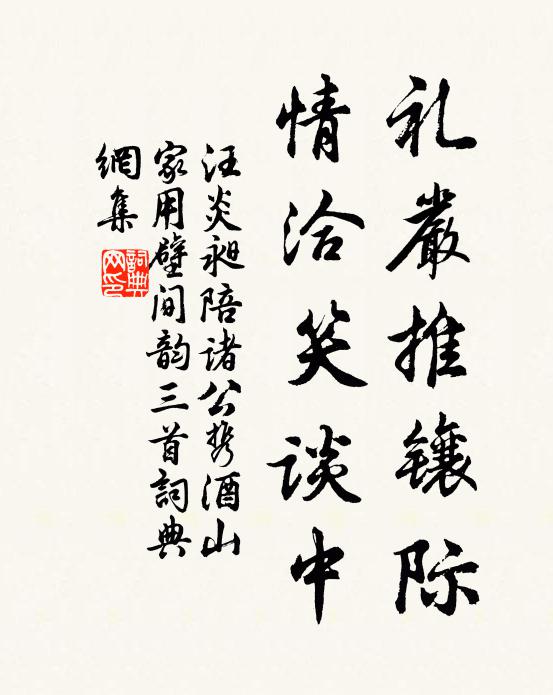 礼嚴推镶际
情洽笑谈中
汪炎昶陪诸公携酒山
家用壁间韵三首詞典
網集
詞典
网印